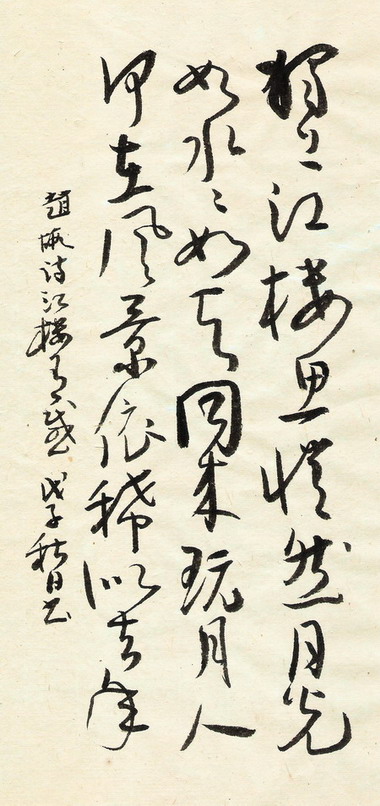 獨上江樓思然月光
如水々如天同来玩月人
何在風景依稀似去年
趙嘏詩江樓有感 戊子秋日書